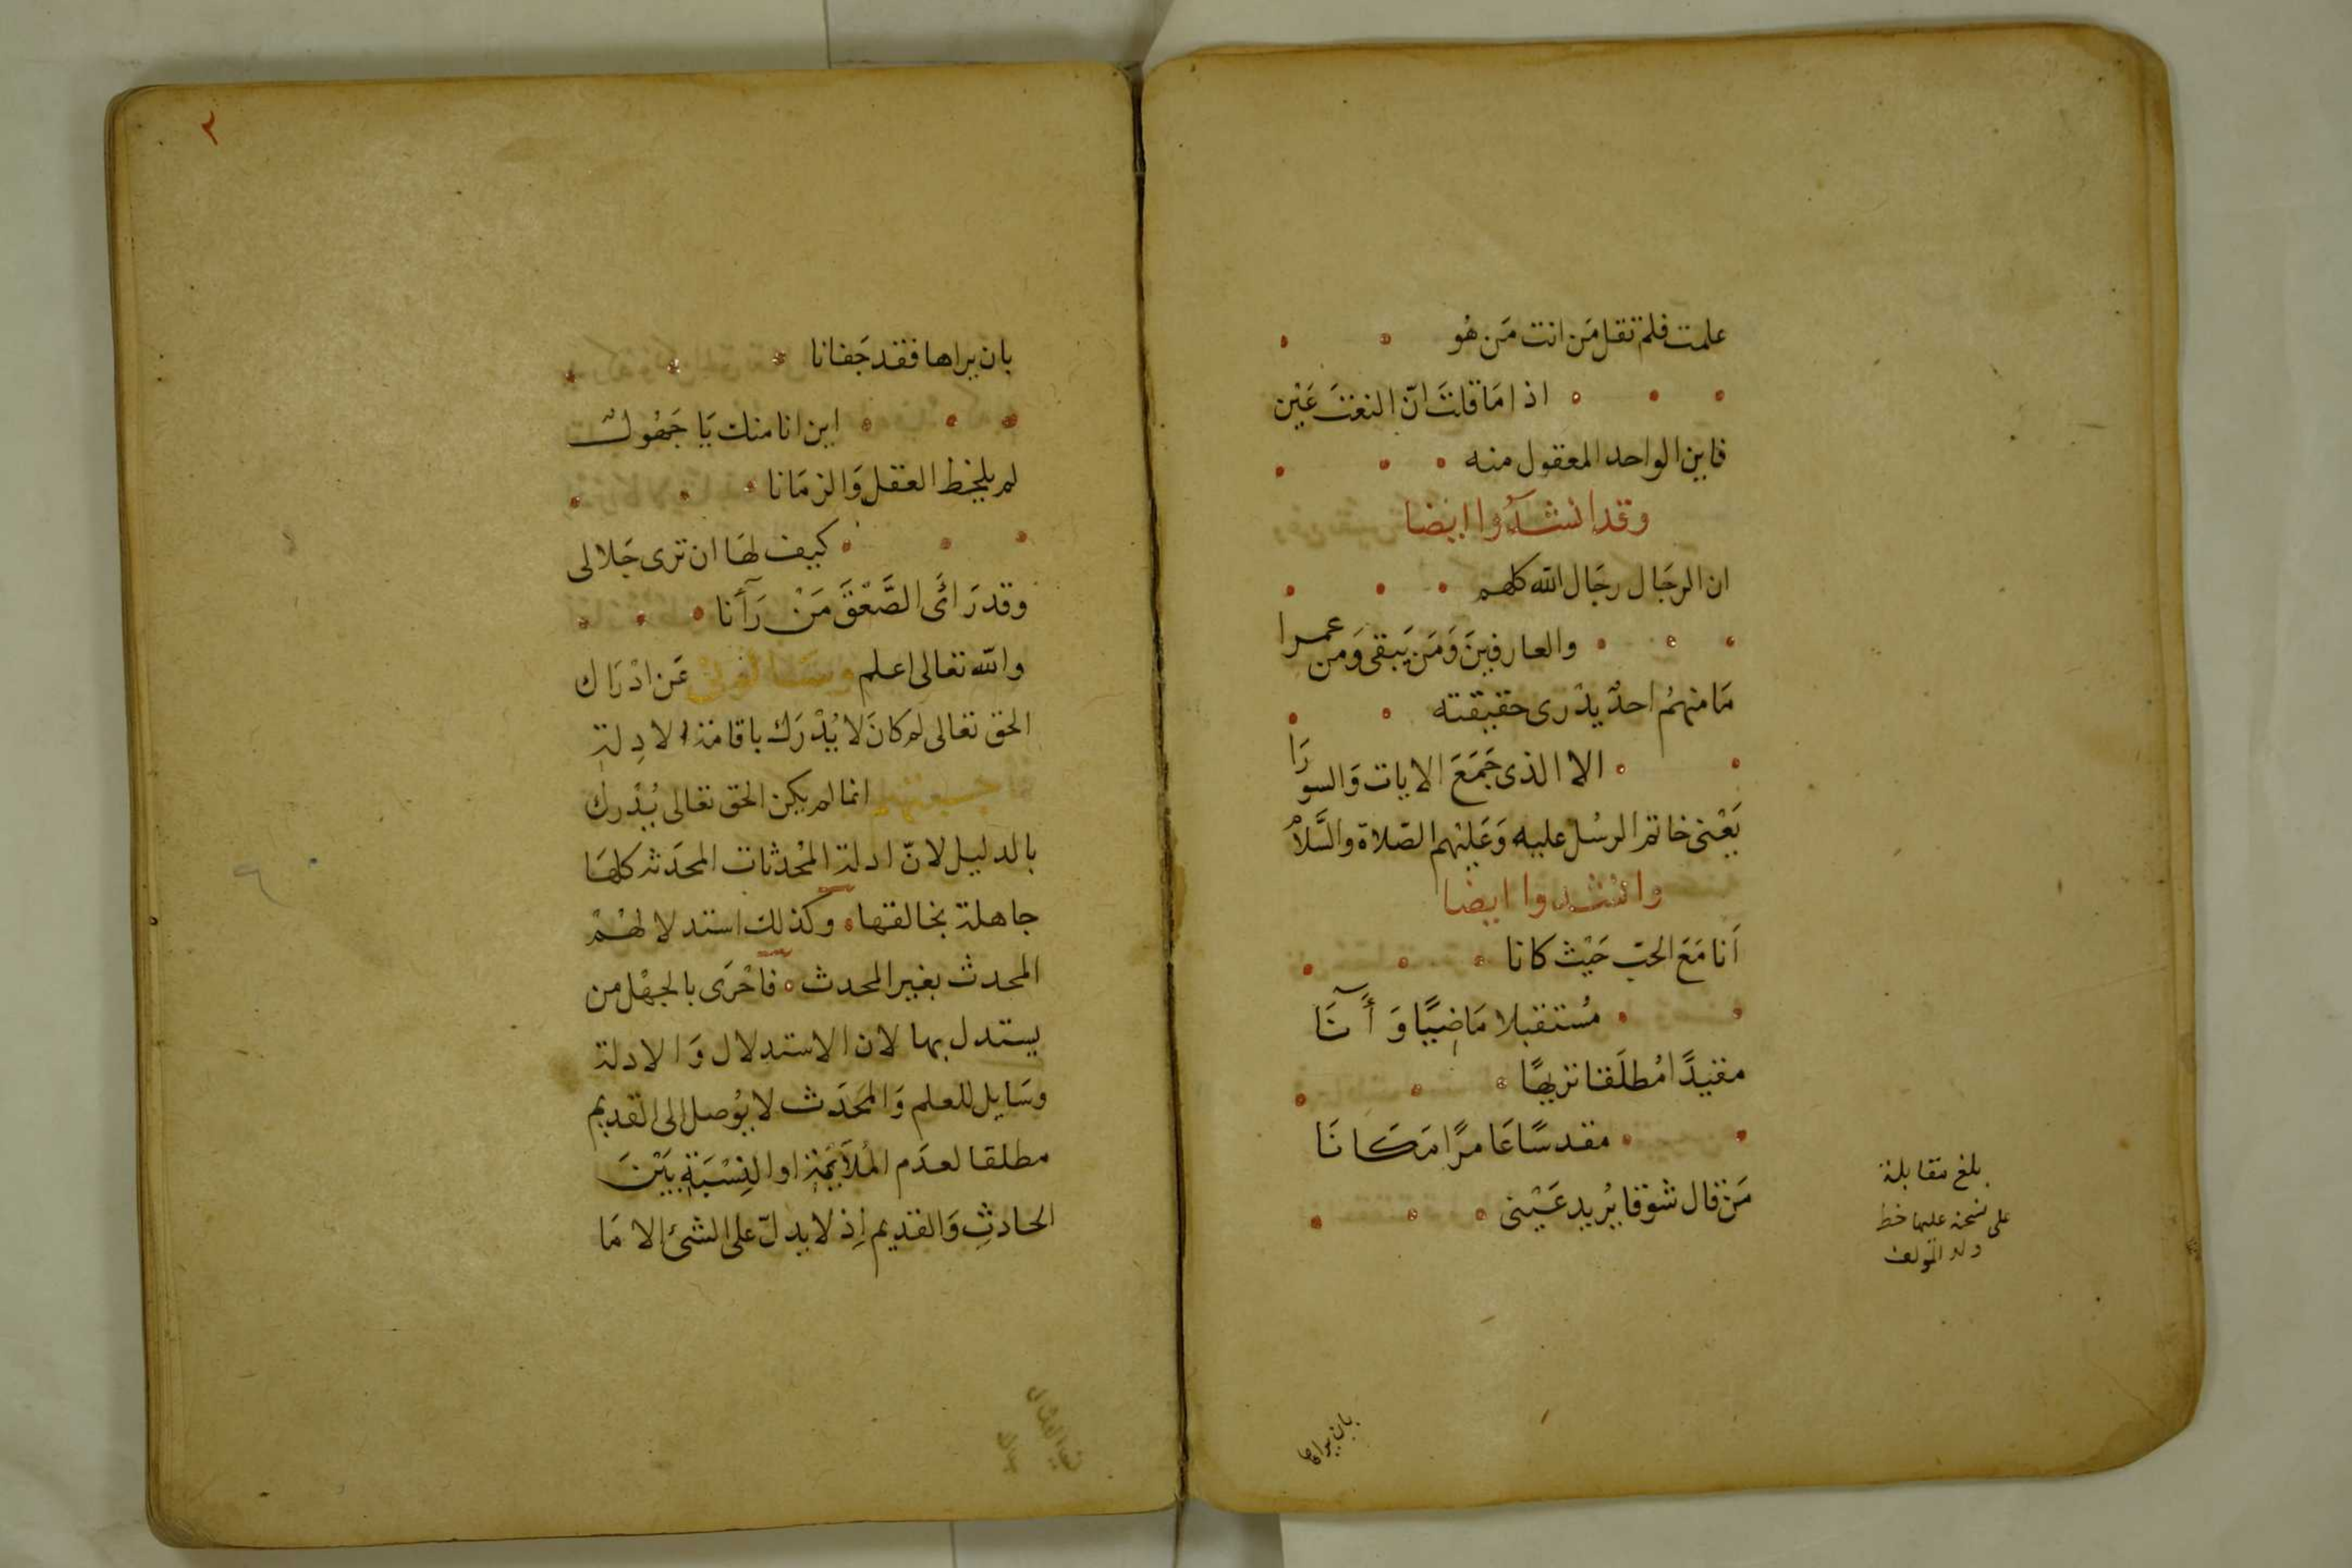 علمت فلم تقل مَن انت مَن هُو
اذا مَا قلتَ انّ النعتَ عَيْن
فاين الواحد المعقول منه
وقد انشدُوا ايضا
ان الرجَال رجَال الله كلهم
والعارفينَ وَمَن يَبقى وَمن عمرا
مَا منهمُ احدٌ يدْرى حقيقته
الا الذى جَمَعَ الايات وَالسورَا
يَعْنى خاتم الرسُل عليه وَعَليْهم الصّلاة والسَّلامْ
وانشدوا ايضا
اَنا مَعَ الحبّ حَيْث كانا
مُستقبلا مَاضيًا وَ أٓنَا
مقيدًا مُطلَقا نزيهًا
مقدسًا عَامرًا مَكَانَا
مَنْ قال شوْقا يُريد عَيْنى
بلغ مقابلة
على نسخة عليها خط
ولد المؤلف
بان يراها
٢
بان يراها فقد جَفانا
اين انا منك يَا جَهُولٌ
لم يلحظ العقل وَالزمَانا
كيف لهَا ان ترى جَلالى
وقد رَائَى الصَّعْقَ مَنْ رَآنا
والله تعالى اعلم عَن ادْرَاك
الحق تعالى لم كانَ لا يُدْرَك باقامة الادِلة
انما لم يكن الحق تعالى يُدْرك
بالدليل لانّ ادلة المحْدثات المحدَثه كلهَا
جاهلة بخالقها وكذلك استدلالهُمْ
المحدث بغير المحدث فاحْرَى بالجهْل من
يستدل بها لان الاستدلال وَالادلة
وسَايل للعلم وَالمحَدَث لا يُوصل الى القديم
مطلقا لعدَم المُلاَيَمَةِ او النِسْبَةِ بَيْنَ
الحادثِ وَالقديم اِذ لا يدلّ على الشئ الا مَا